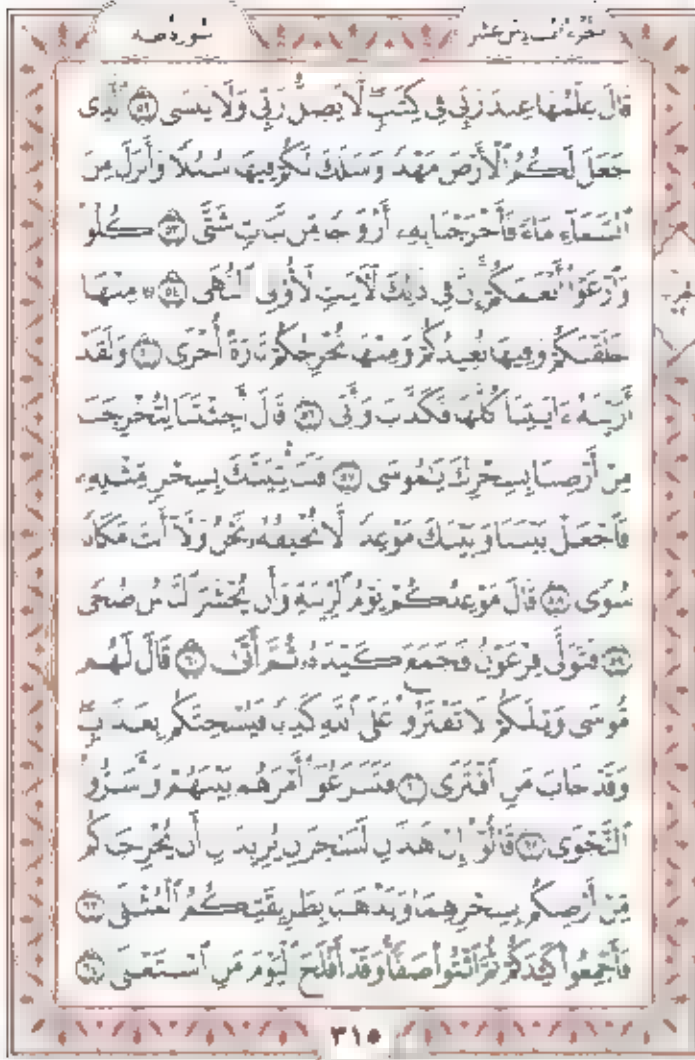 سورة طه
الجزء السادس عشر
قَالَ عِلْمُهَا عِندَ رَبِّي فِي كِتَٰبٍۖ لَّا يَضِلُّ رَبِّي وَلَا يَنسَى ٥٢ ٱلَّذِي
جَعَلَ لَكُمُ ٱلْأَرْضَ مَهْدًا وَسَلَكَ لَكُمْ فِيهَا سُبُلًا وَأَنزَلَ مِنَ
ٱلسَّمَآءِ مَآءً فَأَخْرَجْنَا بِهِۦٓ أَزْوَٰجًا مِّن نَّبَاتٍ شَتَّىٰ ٥٣ كُلُوا۟
وَٱرْعَوْا۟ أَنْعَٰمَكُمْۗ إِنَّ فِي ذَٰلِكَ لَءَايَٰتٍ لِّأُو۟لِي ٱلنُّهَىٰ ٥٤ ۞ مِنْهَا
خَلَقْنَٰكُمْ وَفِيهَا نُعِيدُكُمْ وَمِنْهَا نُخْرِجُكُمْ تَارَةً أُخْرَىٰ ٥٥ وَلَقَدْ
أَرَيْنَٰهُ ءَايَٰتِنَا كُلَّهَا فَكَذَّبَ وَأَبَىٰ ٥٦ قَالَ أَجِئْتَنَا لِتُخْرِجَنَا
مِنْ أَرْضِنَا بِسِحْرِكَ يَٰمُوسَىٰ ٥٧ فَلَنَأْتِيَنَّكَ بِسِحْرٍ مِّثْلِهِۦ
فَٱجْعَلْ بَيْنَنَا وَبَيْنَكَ مَوْعِدًا لَّا نُخْلِفُهُۥ نَحْنُ وَلَآ أَنتَ مَكَانًا
سُوًى ٥٨ قَالَ مَوْعِدُكُمْ يَوْمُ ٱلزِّينَةِ وَأَن يُحْشَرَ ٱلنَّاسُ ضُحًى
٥٩ فَتَوَلَّىٰ فِرْعَوْنُ فَجَمَعَ كَيْدَهُۥ ثُمَّ أَتَىٰ ٦٠ قَالَ لَهُم
مُّوسَىٰ وَيْلَكُمْ لَا تَفْتَرُوا۟ عَلَى ٱللَّهِ كَذِبًا فَيُسْحِتَكُم بِعَذَابٍۖ
وَقَدْ خَابَ مَنِ ٱفْتَرَىٰ ٦١ فَتَنَٰزَعُوٓا۟ أَمْرَهُم بَيْنَهُمْ وَأَسَرُّوا۟
ٱلنَّجْوَىٰ ٦٢ قَالُوٓا۟ إِنْ هَٰذَٰنِ لَسَٰحِرَٰنِ يُرِيدَانِ أَن يُخْرِجَاكُم
مِّنْ أَرْضِكُم بِسِحْرِهِمَا وَيَذْهَبَا بِطَرِيقَتِكُمُ ٱلْمُثْلَىٰ ٦٣
فَأَجْمِعُوا۟ كَيْدَكُمْ ثُمَّ ٱئْتُوا۟ صَفًّاۚ وَقَدْ أَفْلَحَ ٱلْيَوْمَ مَنِ ٱسْتَعْلَىٰ ٦٤
٣١٥